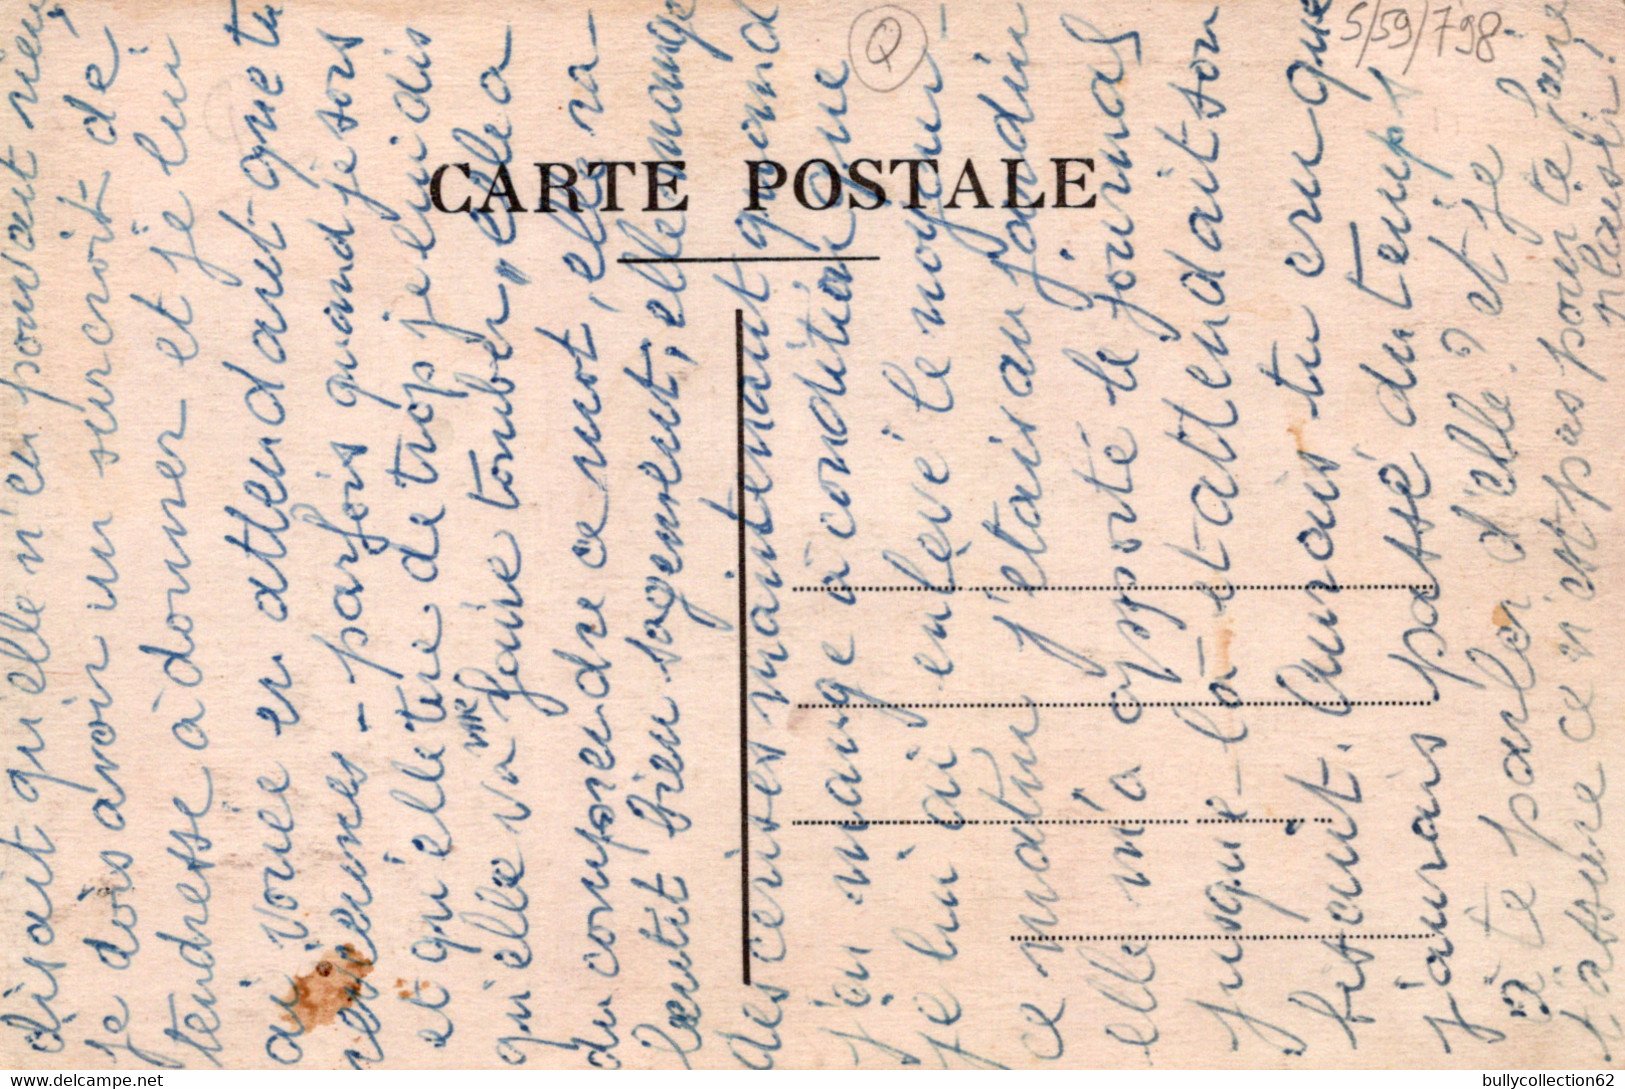 disait qu'elle n'en pouvait rien,
je dois avoir un surcroit de
tendresse à donner et je lui
ai vouée en attendant que tu
reviennes - parfois quand je sors
et qu'elle tire de trop je lui dis
qu'elle va me faire tomber, elle a
du comprendre ce mot, elle ra-
lentit bien sagement, elle mange
des cerises maintenant quand
j'en mange à condition que
je lui ai enlevé le noyau -
ce matin j'étais au jardin
elle m'a apporté le journal
jusque-là et attendait son
biscuit. Aurais tu cru que
j'aurais passé du temps
à te parler d'elle? et je
t'assure ce n'est pas pour te faire
plaisir!
CARTE POSTALE
Q
5/59/798-
bullycollection62